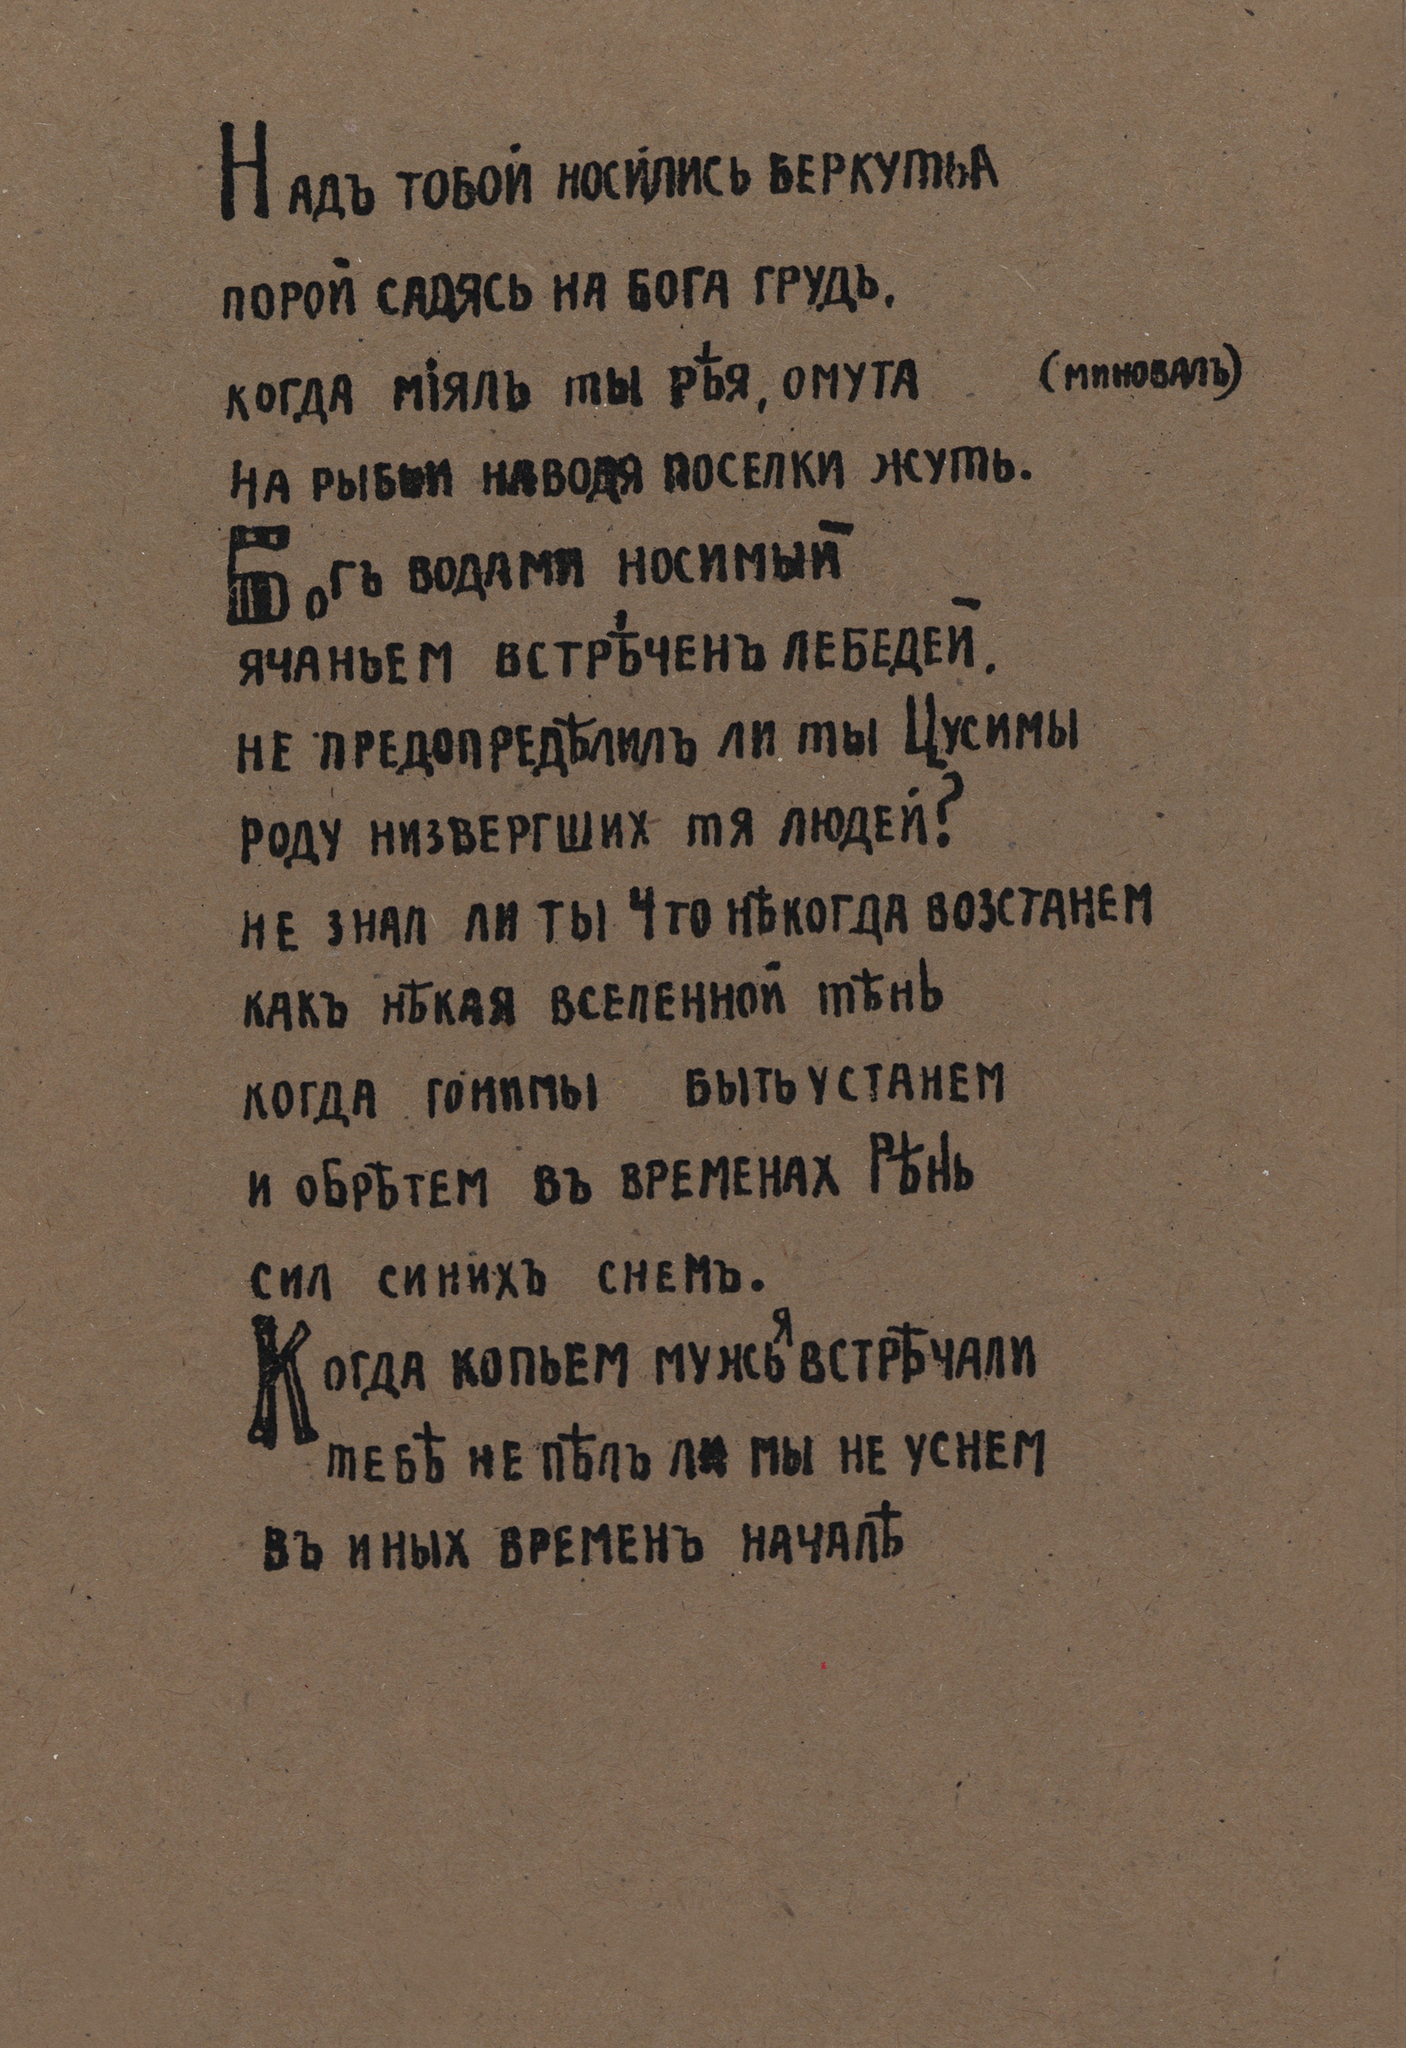 Надъ тобой носились беркутьа
порой садясь на бога грудь.
когда мiялъ ты рѣя, омута (миновалъ)
на рыбьи наводя поселки жуть.
Богъ водами носимый
ячаньем встрѣченъ лебедей.
не предопредѣлилъ ли ты Цусимы
роду низвергших тя людей?
не знал ли ты Что нѣкогда возстанем
какъ нѣкая вселенной тѣнь
когда гонимы быть устанем
и обрѣтем въ временах Рѣнь
сил синихъ снемъ.
Когда копьем мужья встрѣчали
тебѣ не пѣлъ ли мы не уснем
въ иных временъ началѣ